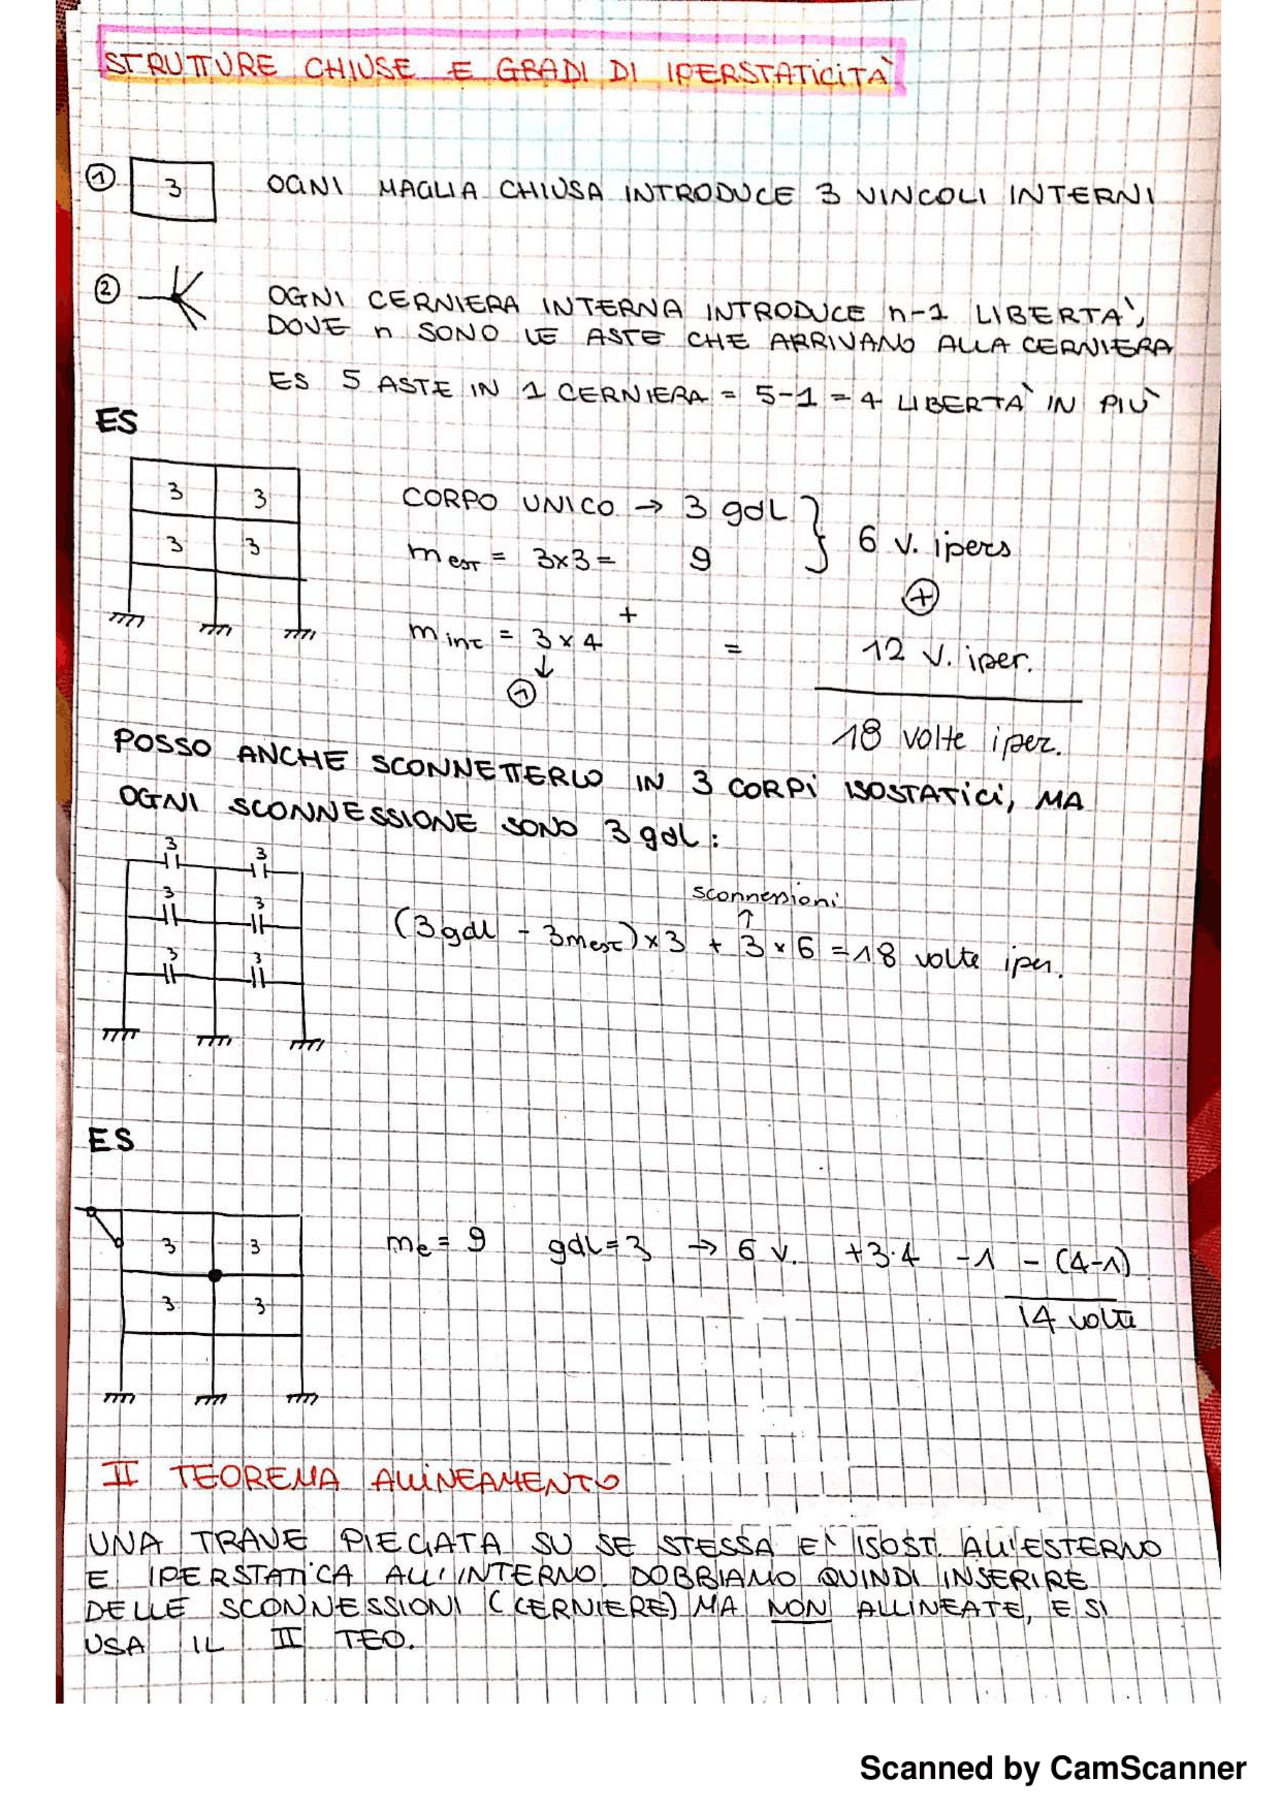 STRUTTURE CHIUSE E GRADI DI IPERSTATICITÀ
① 3 OGNI MAGLIA CHIUSA INTRODUCE 3 VINCOLI INTERNI
② OGNI CERNIERA INTERNA INTRODUCE n-1 LIBERTA',
DOVE n SONO LE ASTE CHE ARRIVANO ALLA CERNIERA
ES 5 ASTE IN 1 CERNIERA = 5-1 = 4 LIBERTÀ IN PIÙ
ES
3 3
3 3
CORPO UNICO → 3 gdL } 6 v. ipers
m est = 3x3 = 9
⊕
m int = 3 x 4 + = 12 v. iper.
↓
①
18 volte iper.
POSSO ANCHE SCONNETTERLO IN 3 CORPI ISOSTATICI, MA
OGNI SCONNESSIONE SONO 3 gdL :
3 3
3 3
3 3
sconnessioni
↑
(3gdl - 3mest) x 3 + 3 x 6 = 18 volte iper.
ES
3 3
3 3
me = 9 gdL = 3 → 6 v. +3·4 -1 - (4-1)
14 volte
II TEOREMA ALLINEAMENTO
UNA TRAVE PIEGATA SU SE STESSA E' ISOST. ALL'ESTERNO
E IPERSTATICA ALL'INTERNO. DOBBIAMO QUINDI INSERIRE
DELLE SCONNESSIONI (CERNIERE) MA NON ALLINEATE, E SI
USA IL II TEO.
Scanned by CamScanner